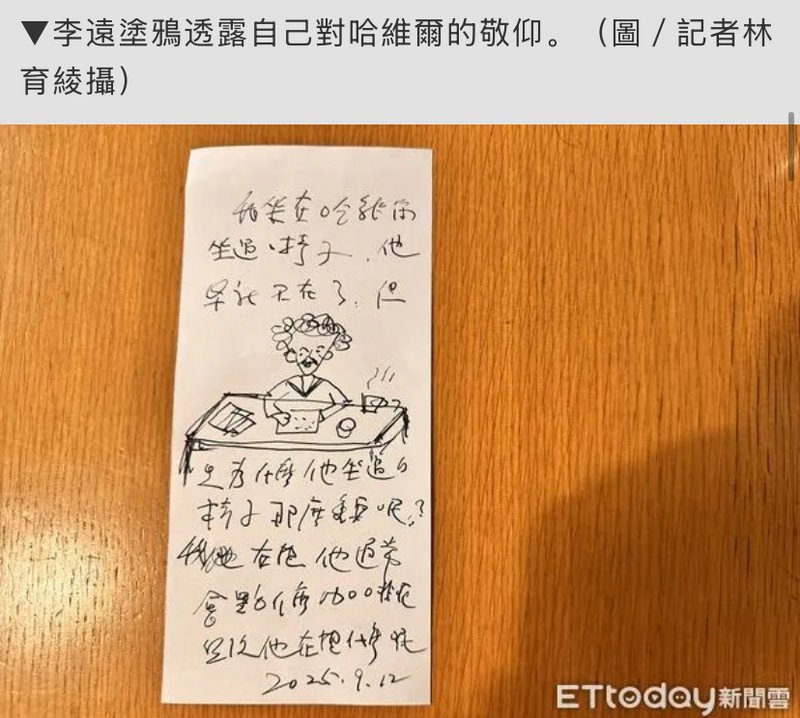 ▼李遠塗鴉透露自己對哈維爾的敬仰。（圖／記者林
育綾攝）
我坐在哈維爾
坐過的椅子，他
早就不在了，但
是為什麼他坐過的
椅子那麼重要呢？
我也在想他通常
會點什麼咖啡
2025.9.12
ETtoday新聞雲